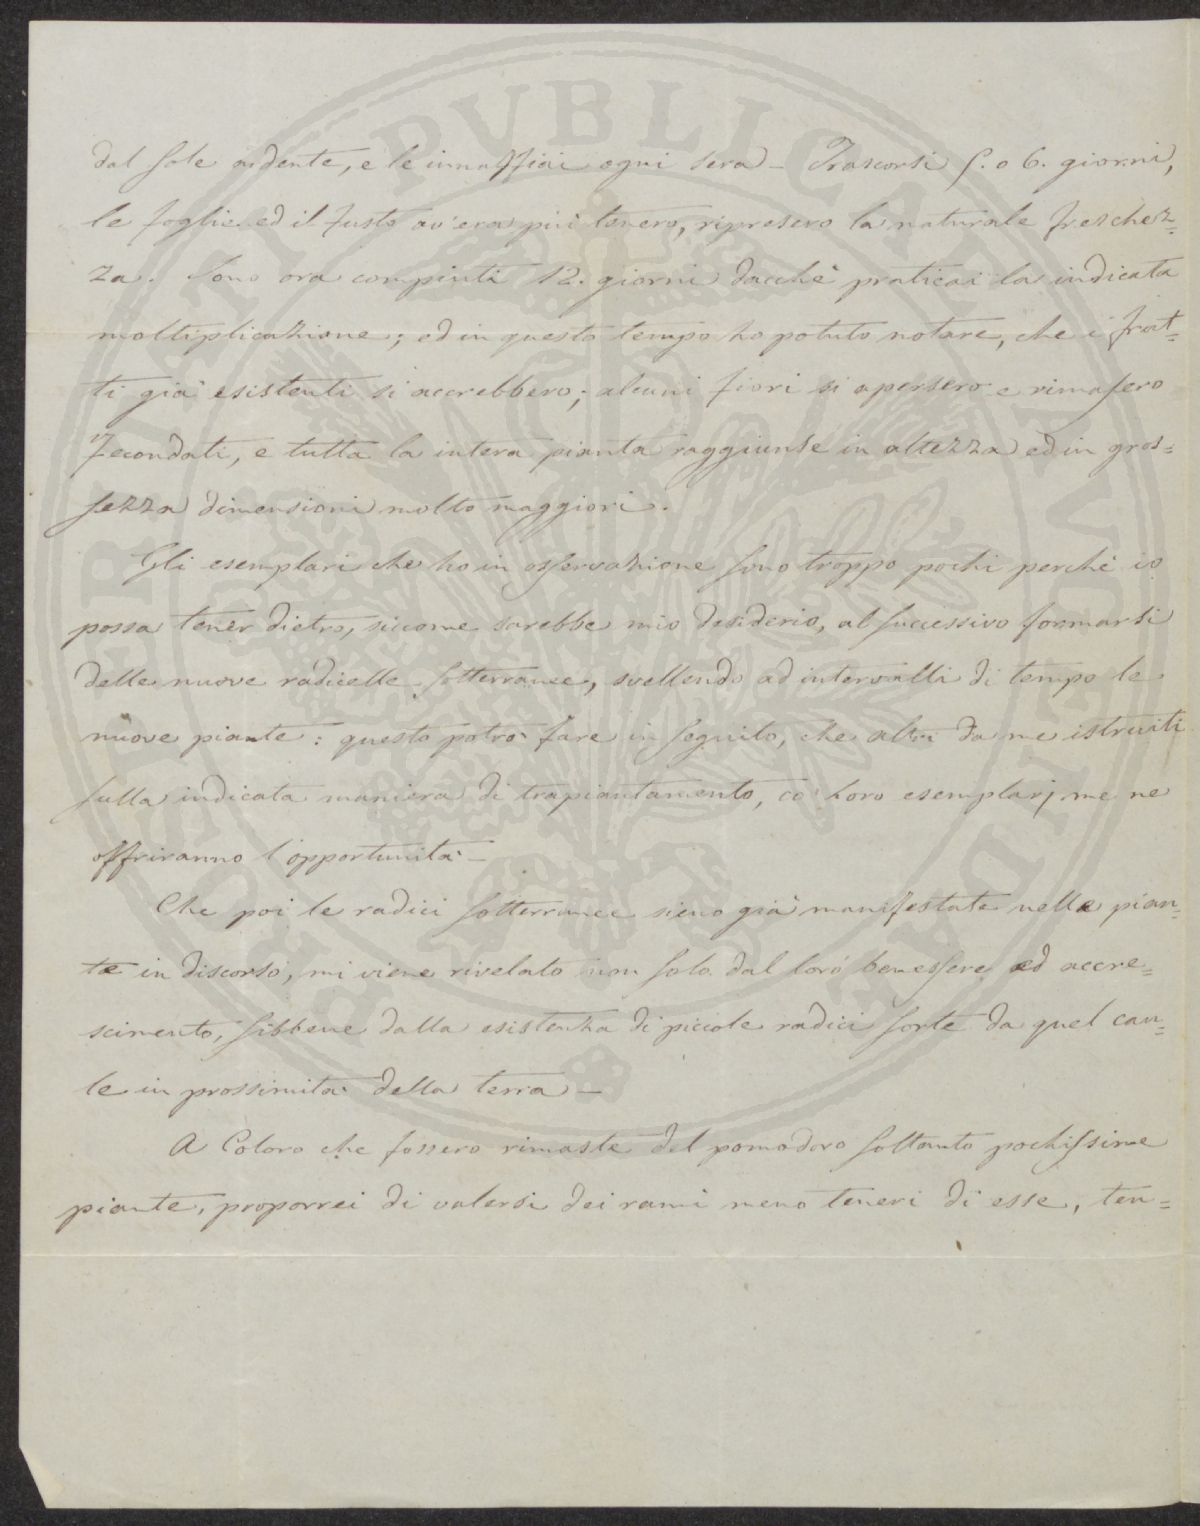 dal sole ardente, e le innaffiai ogni sera – Trascorsi 5. o 6. giorni,
le foglie ed il fusto ov'era più tenero, ripresero la naturale freschez=
za. Sono ora compiuti 12. giorni dacchè praticai la indicata
moltiplicazione; ed in questo tempo ho potuto notare, che i frut=
ti già esistenti si accrebbero; alcuni fiori si apersero e rimasero
fecondati, e tutta la intera pianta raggiunse in altezza ed in gros=
sezza dimensioni molto maggiori.
Gli esemplari che ho in osservazione sono troppo pochi perchè io
possa tener dietro, siccome sarebbe mio desiderio, al successivo formarsi
delle nuove radicelle sotterranee, svellendo ad intervalli di tempo le
nuove piante: questo potrò fare in seguito, che altri da me istruiti
sulla indicata maniera di trapiantamento, co' loro esemplarj me ne
offriranno l'opportunità –
Che poi le radici sotterranee sieno già manifestate nelle pian=
te in discorso, mi viene rivelato non solo dal loro benessere ed accre=
scimento, sibbene dalla esistenza di piccole radici sorte da quel cau=
le in prossimità della terra –
A Coloro che fossero rimaste del pomodoro soltanto pochissime
piante, proporrei di valersi dei rami meno teneri di esse, ten=